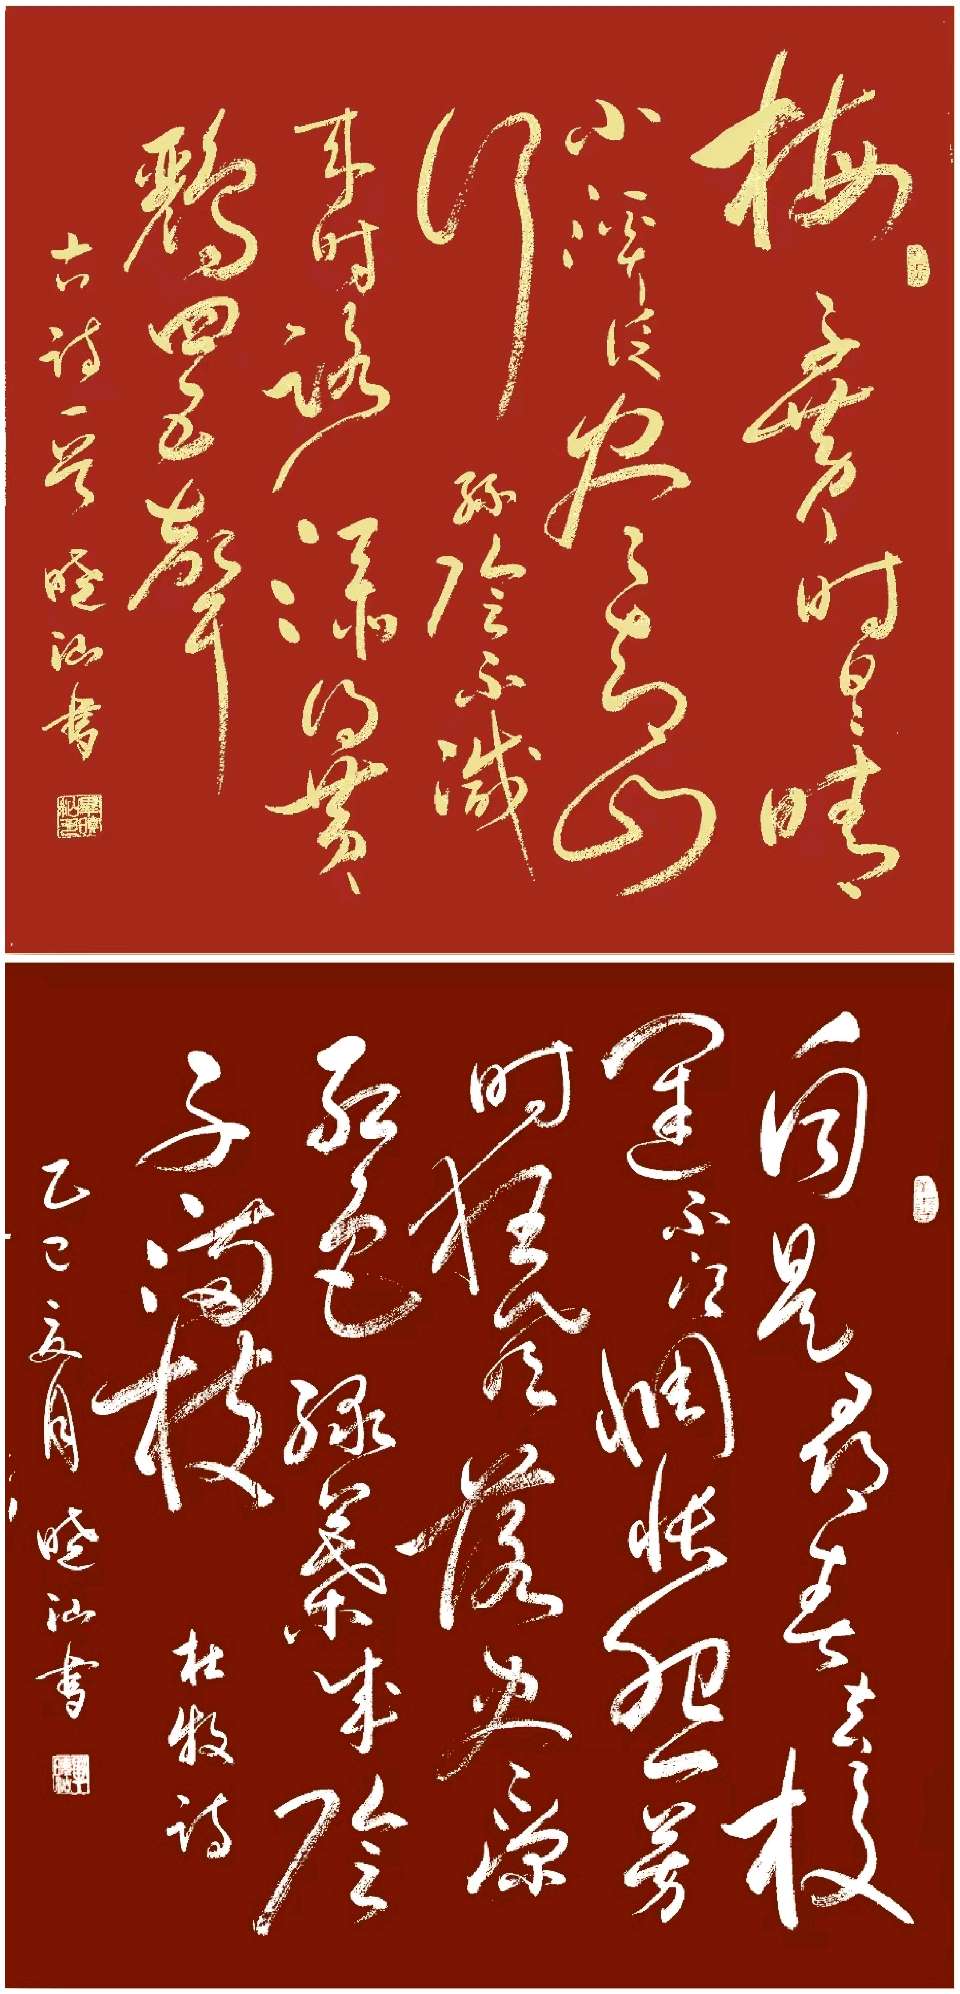 梅子黄时日日晴
小溪泛尽却山
行绿阴不减
来时路添得黄
鹂四五聲
古诗一首 晓汕书
自是寻春去校
迟不须惆怅怨芳
时狂风落尽深
红色绿叶成阴
子满枝
杜牧诗
乙巳夏月 晓汕书